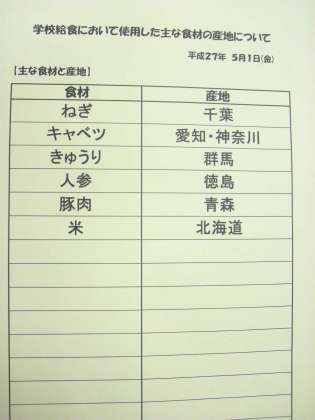 学校給食において使用した主な食材の産地について
平成27年 5月1日(金)
【主な食材と産地】
食材 産地
ねぎ 千葉
キャベツ 愛知・神奈川
きゅうり 群馬
人参 徳島
豚肉 青森
米 北海道